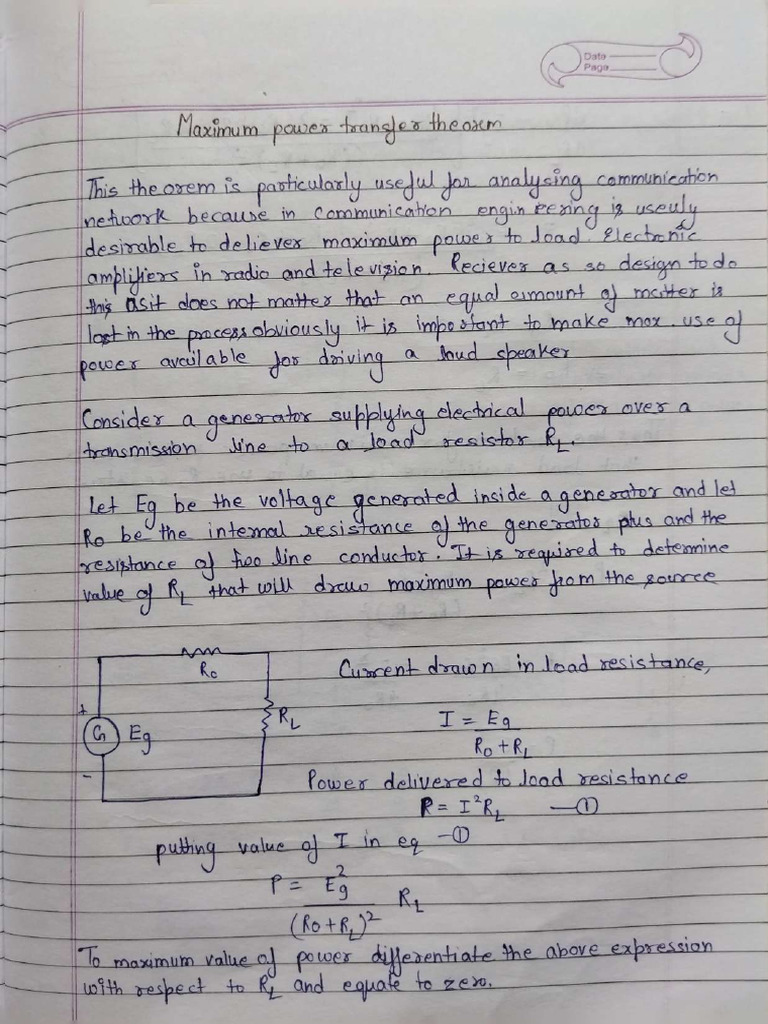 Date
Page
Maximum power transfer theorem
This theorem is particularly useful for analysing communication
network because in communication engineering is useuly
desirable to deliever maximum power to load. Electronic
amplifiers in radio and television. Reciever as so design to do
this as it does not matter that an equal amount of matter is
lost in the process obviously it is important to make max. use of
power available for driving a loud speaker
Consider a generator supplying electrical power over a
transmission line to a load resistor RL.
Let Eg be the voltage generated inside a generator and let
Ro be the internal resistance of the generator plus and the
resistance of two line conductor. It is required to determine
value of RL that will draw maximum power from the source
Ro
Current drawn in load resistance,
+
G Eg
RL
I = Eg
Ro + RL
-
Power delivered to load resistance
P = I²RL —①
putting value of I in eq -①
P = Eg² RL
(Ro + RL)²
To maximum value of power differentiate the above expression
with respect to RL and equate to zero.